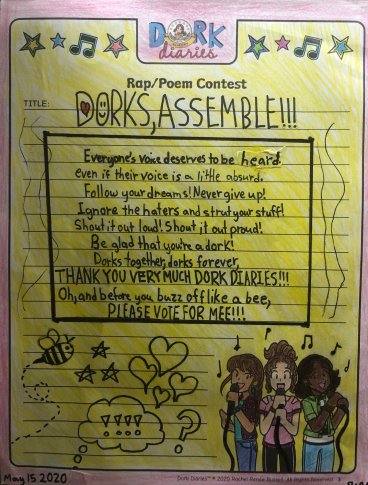 DORK
diaries
Rap/Poem Contest
TITLE: DORKS, ASSEMBLE!!!
Everyone's voice deserves to be heard
even if their voice is a little absurd.
Follow your dreams! Never give up!
Ignore the haters and strut your stuff!
Shout it out loud! Shout it out proud!
Be glad that you're a dork!
Dorks together, dorks forever,
THANK YOU VERY MUCH DORK DIARIES!!!
Oh, and before you buzz off like a bee,
PLEASE VOTE FOR MEE!!!
!!!!
?
Dork Diaries™ © 2020 Rachel Renée Russell. All Rights Reserved.
May 15 2020